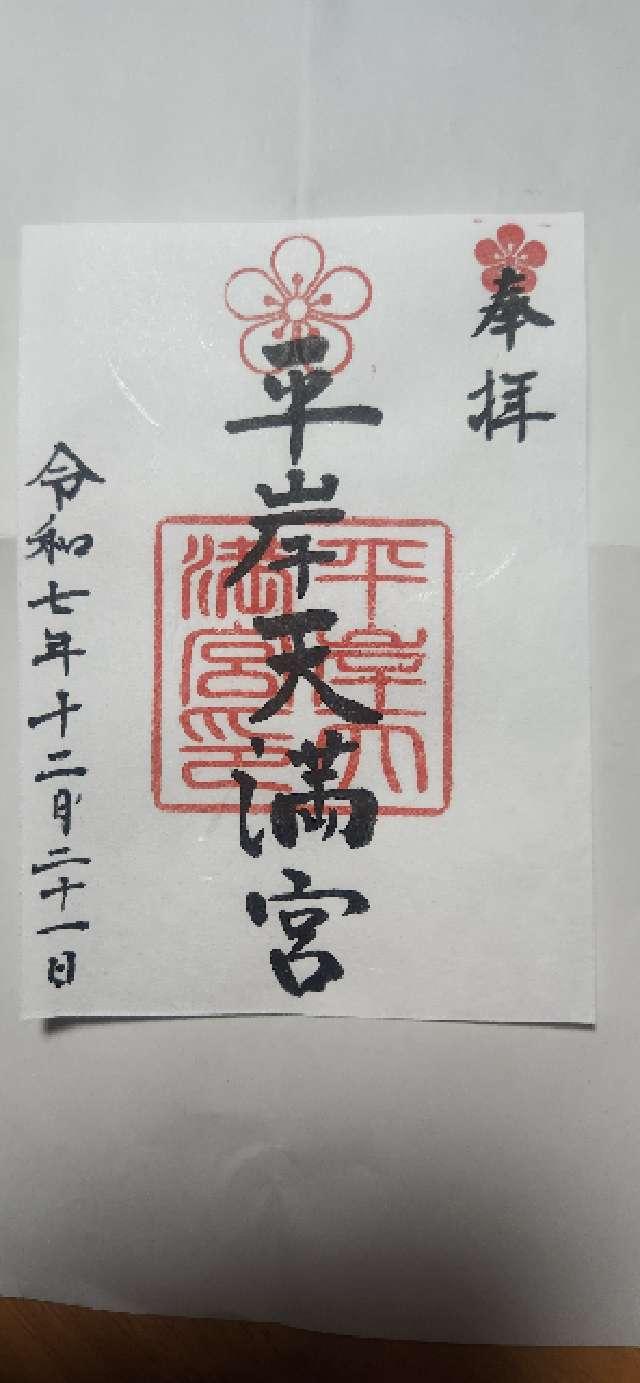 奉拝
平岸天満宮
平岸天
満宮印
令和七年十二月二十一日